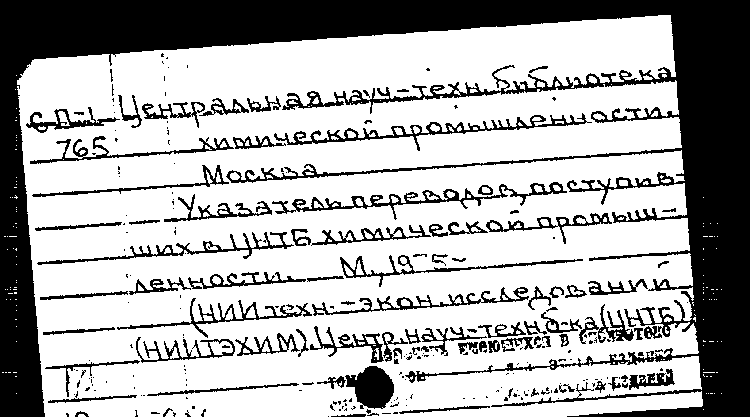 СП-1 Центральная науч-техн. библиотека
765 химической промышленности.
Москва.
Указатель переводов, поступив-
ших в ЦНТБ химической промыш-
ленности. М., 195-
(НИИ техн.-экон. исследований
(НИИТЭХИМ). Центр. науч-техн. б-ка (ЦНТБ))
имеющихся в библиотеке
изданий